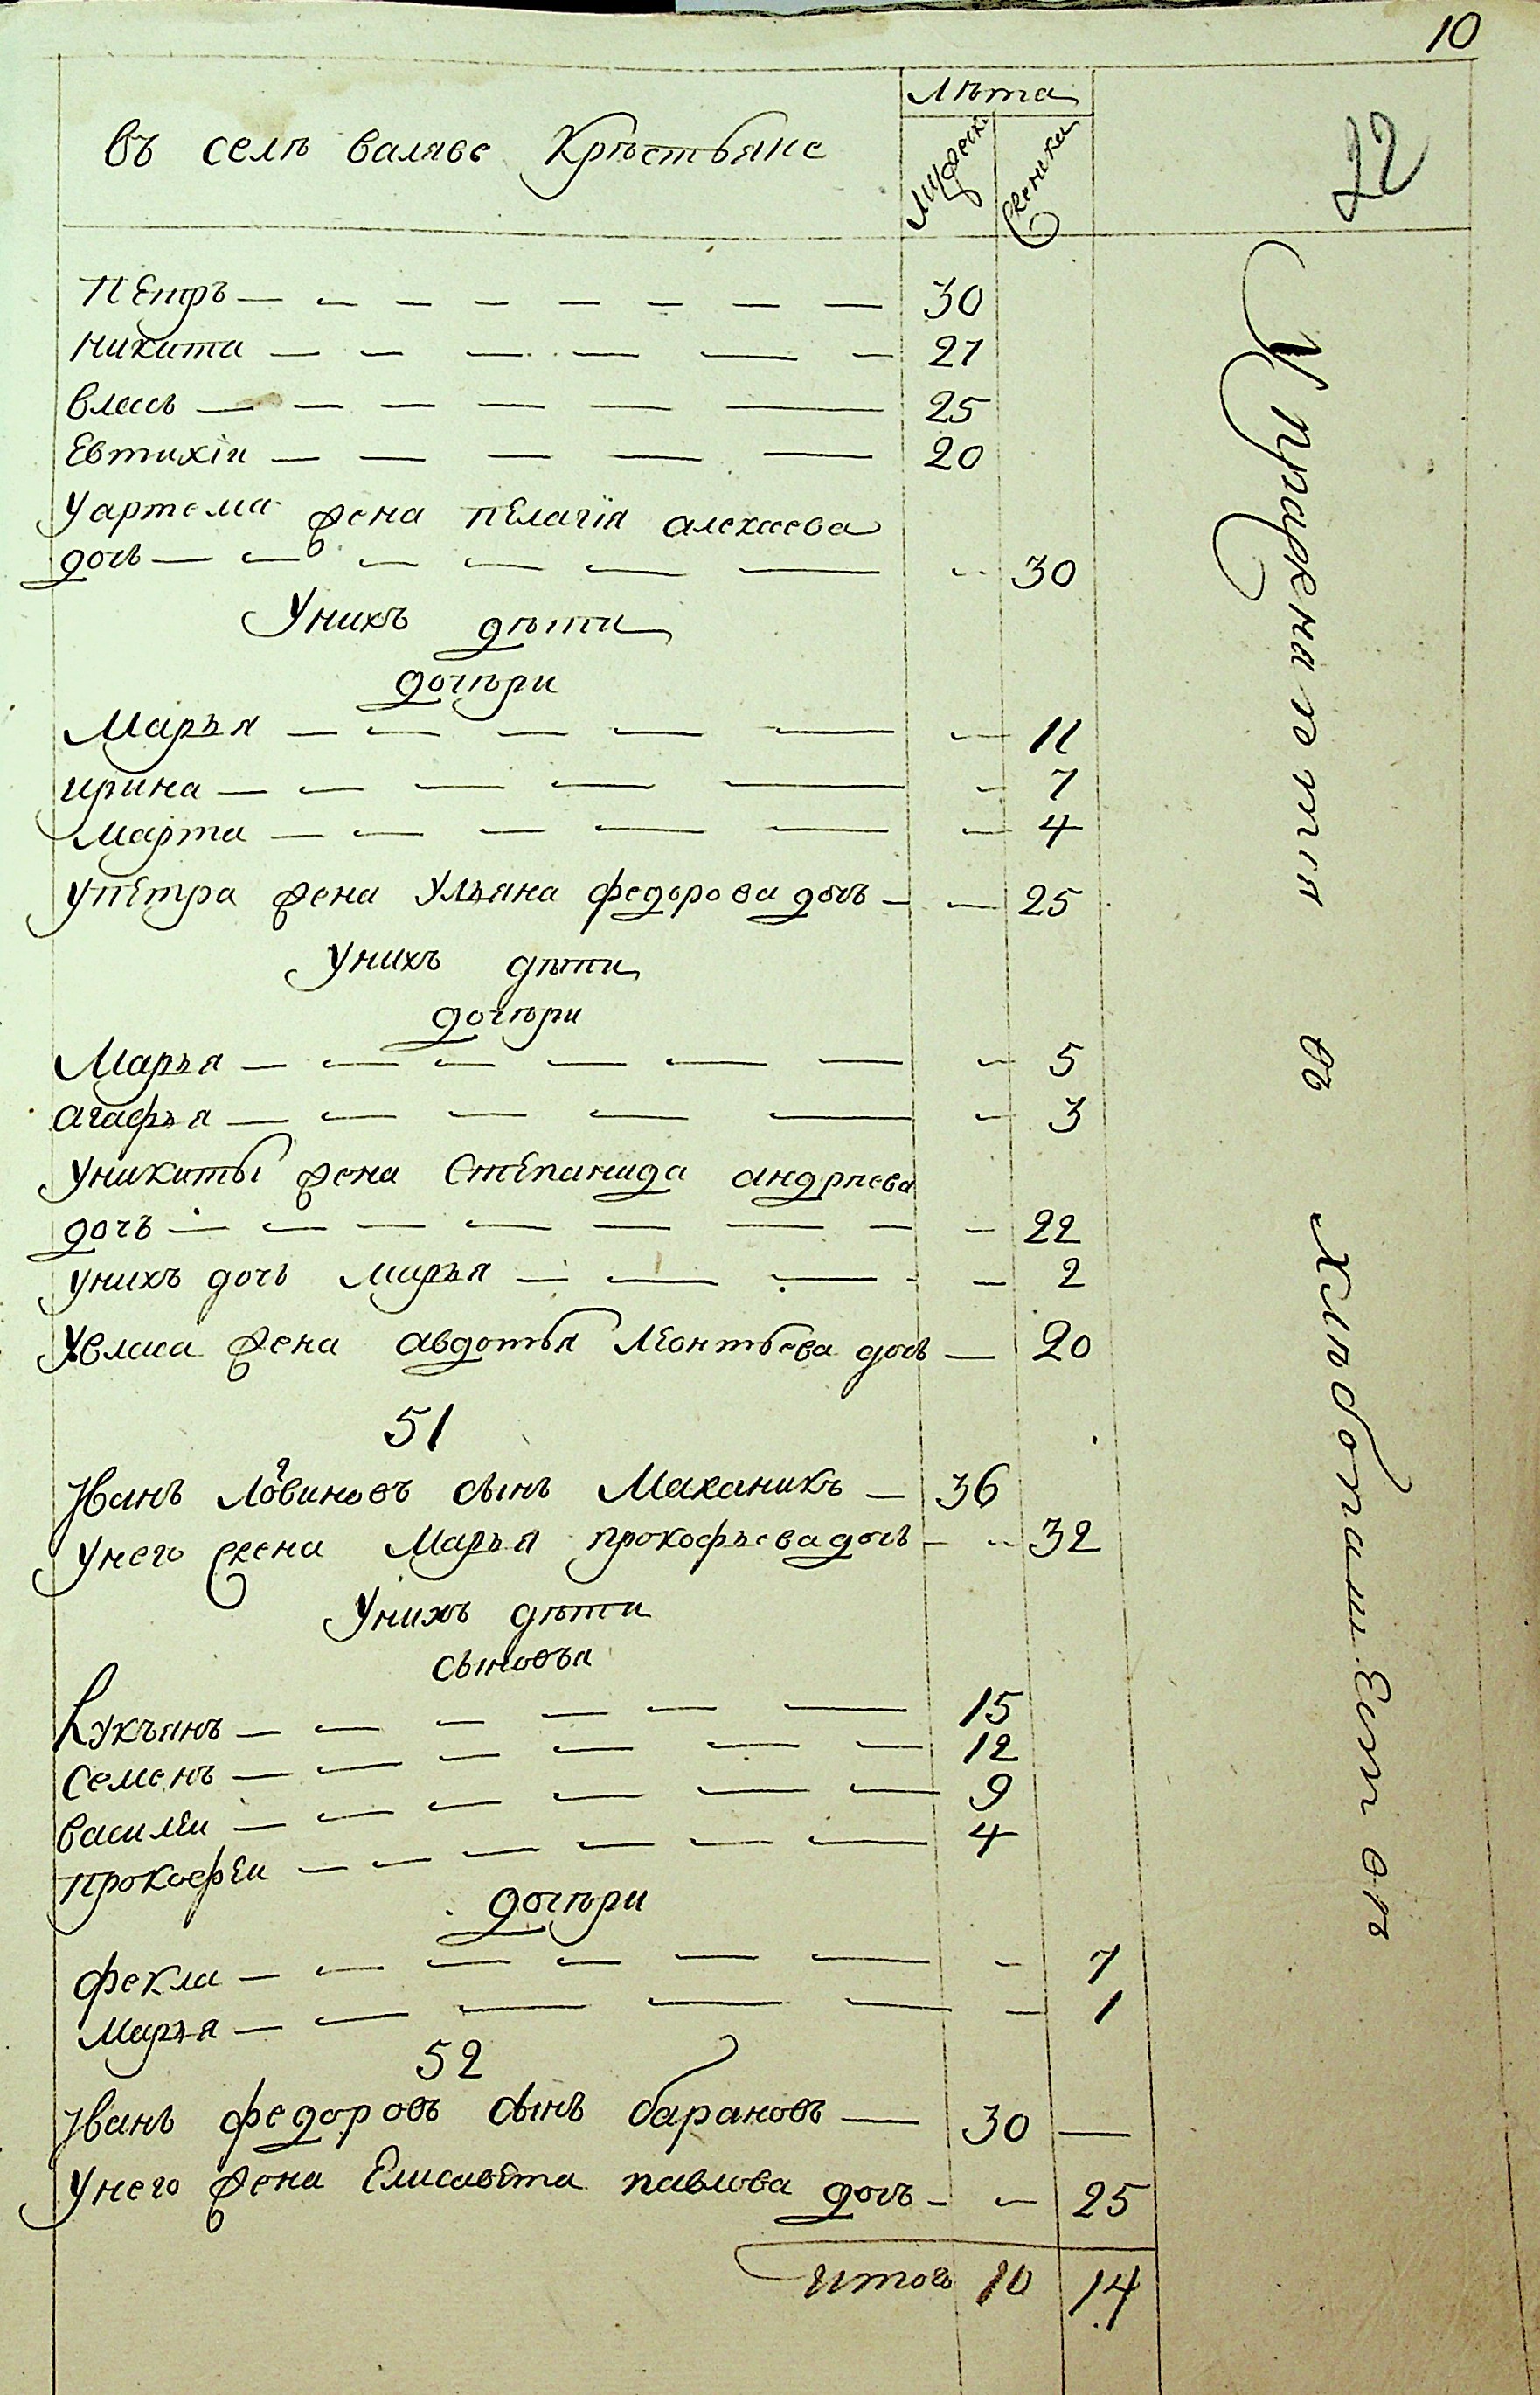 10
22
Лѣта
въ селѣ валяве Крѣстьяне
мужеска
женска
Петръ — 30
никита — 27
власъ — 25
Евтихіи — 20
уартема жена пелагія алексеева
дочь — 30
Унихъ дѣти
дочѣри
Марья — 11
ирина — 7
марта — 4
упетра жена Ульяна федорова дочь — 25
унихъ дѣти
дочѣри
Марья — 5
агафья — 3
уникиты жена Степанида андрѣева
дочь — 22
унихъ дочь марья — 2
Увласа жена авдотья леонтьева дочь — 20
51
Иванъ сынъ Маханикъ — 36
унего жена Марья прокофьева дочь — 32
Унихъ дѣти
сыновья
Лукъянъ — 15
семенъ — 12
васился — 9
прокофеи — 4
дочѣри
фекла — 7
марья — 1
52
Иванъ федоровъ сынъ барановъ — 30 —
Унего жена Елисавета павлова дочь — 25
итого 10 14